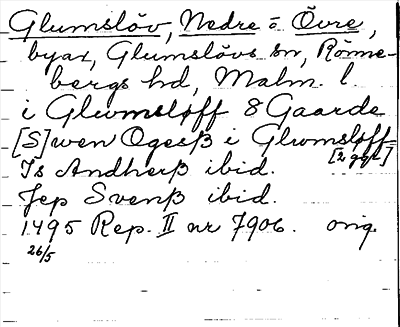 Glumslöv, Nedre o Övre,
byar, Glumslövs sn, Rönne-
bergs hd, Malm. l
i Glumsløff 8 Gaarde
[S]wen Ogesß i Glumsløff
[2 ggr]
Is Andherß ibid.
Jep Svenß ibid.
1495 Rep. II nr 7906. orig.
26/5